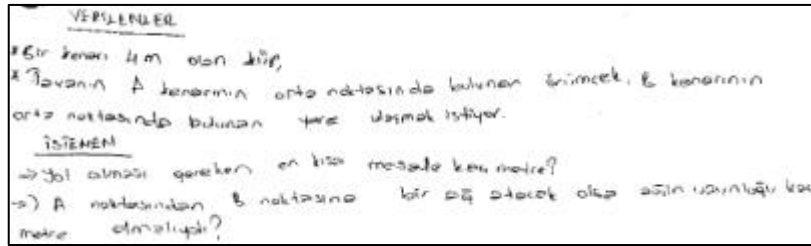 VERİLENLER
* Bir kenarı 4m olan küp,
* Tavanın A kenarının orta noktasında bulunan örümcek, B kenarının
orta noktasında bulunan yere ulaşmak istiyor.
İSTENEN
→ Yol alması gereken en kısa mesafe kaç metre?
→) A noktasından B noktasına bir ağ atacak olsa ağın uzunluğu kaç
metre olmalıydı?